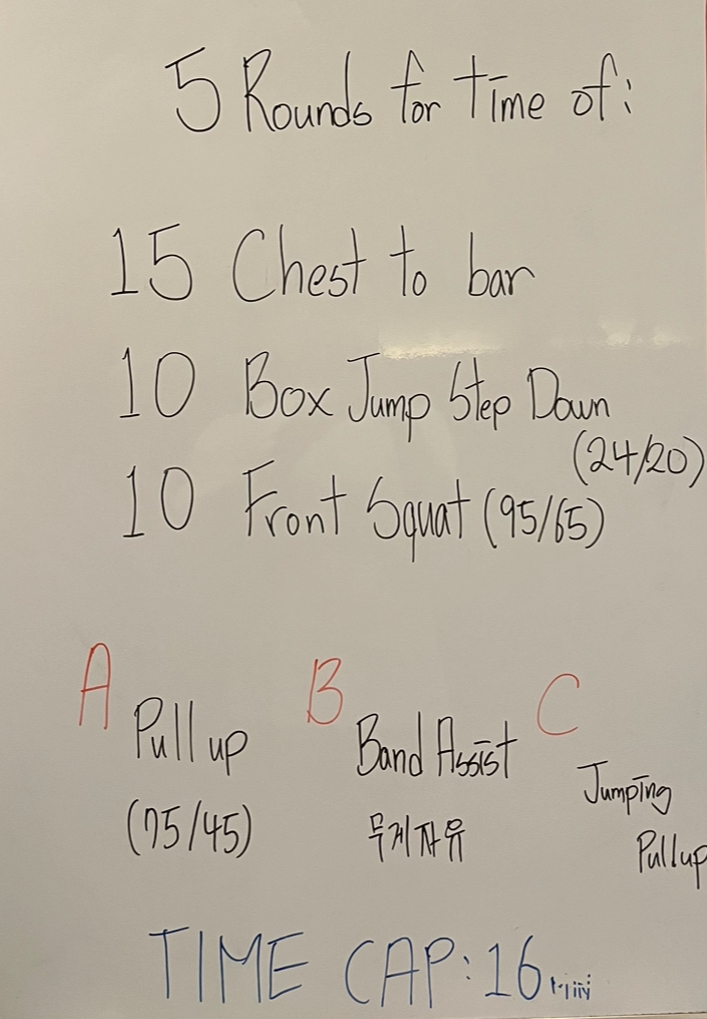 5 Rounds for time of:
15 Chest to bar
10 Box Jump Step Down
(24/20)
10 Front Squat (95/65)
A Pull up
(75/45)
B Band Assist
무게자유
C Jumping
Pullup
TIME CAP: 16min